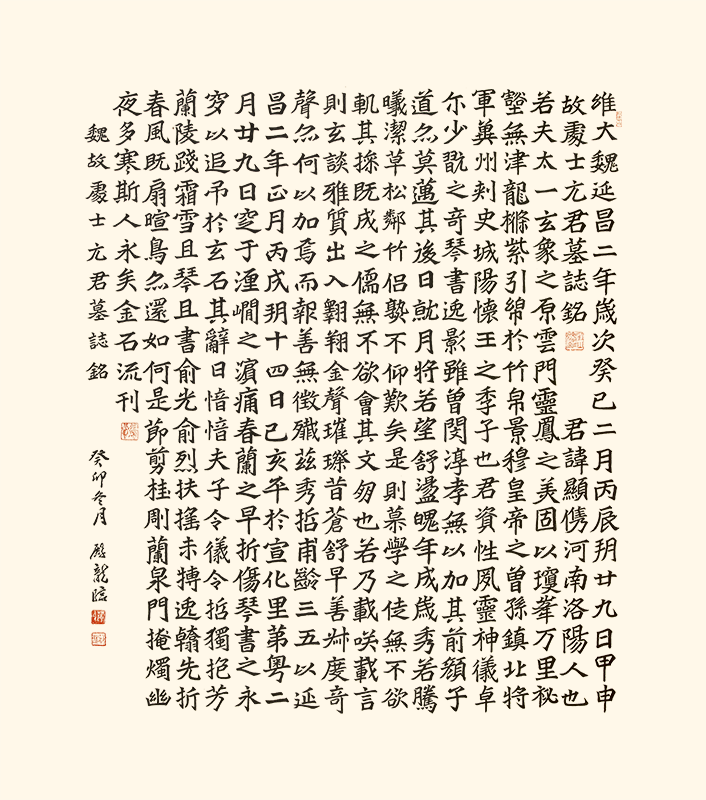 維大魏延昌二年歲次癸巳二月丙辰朔廿九日甲申
故處士元君墓誌銘 君諱顯儁河南洛陽人也
若夫太一玄象之原雲門靈鳳之美固以瓊峯万里秘
壑無津龍滌紫引綿於竹帛景穆皇帝之曾孫鎮北將
軍冀州刺史城陽懷王之季子也君資性夙靈神儀卓
尒少翫之奇琴書逸影雖曾閔淳孝無以加其前顏子
道亦莫邁其後日就月將若望舒盪魄年成歲秀若騰
曦潔草松鄰竹侶孰不仰歎矣是則慕學之徒無不欲
軌其操既成之儒無不欲會其文匆也若乃載咲載言
則玄談雅質出入翱翔金聲璀璨昔蒼舒早善叶度奇
聲亦何以加焉而報善無徵殲茲秀哲甫齡三五以延
昌二年正月丙戌朔十四日己亥卒於宣化里第粵二
月廿九日窆于湹澗之濱痛春蘭之早折傷琴書之永
穸以追吊於玄石其辭曰愔愔夫子令儀令哲獨抱芳
蘭陵踐霜雪且琴且書俞光俞烈扶搖未摶逸翰先折
春風既扇暄鳥亦還如何是節剪桂彫蘭泉門掩燭幽
夜多寒斯人永矣金石流刊
魏故處士元君墓誌銘 癸卯冬月 龍臨